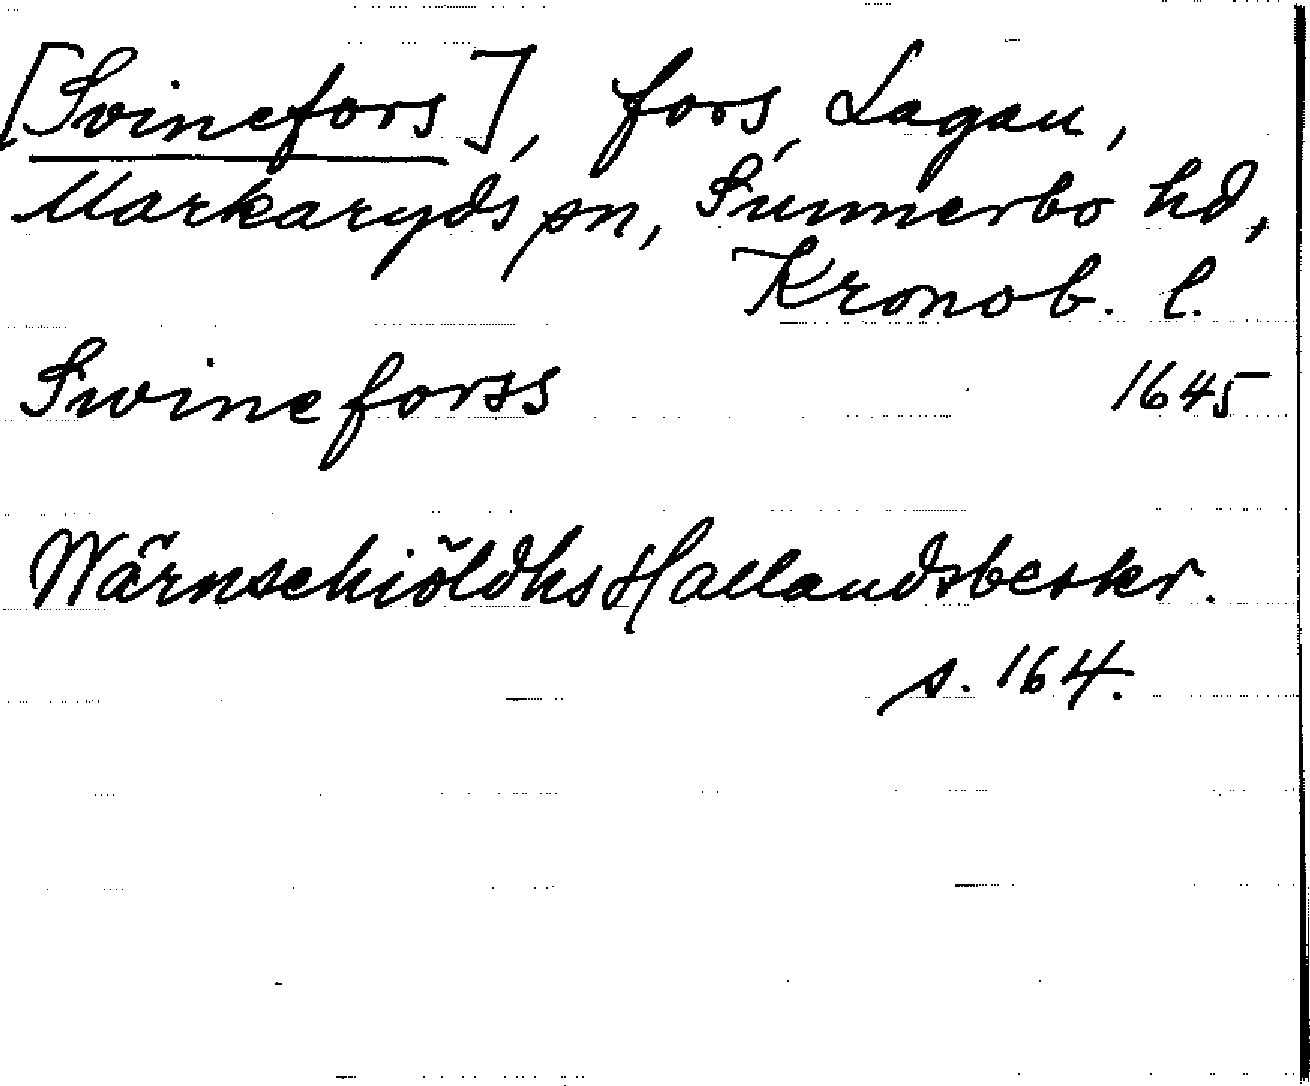 [Svinefors], fors, Lagan,
Markaryds sn, Sunnerbo hd,
Kronob. l.
Swineforss 1645
Wärnschiöldhs Hallandsbeskr.
s. 164.